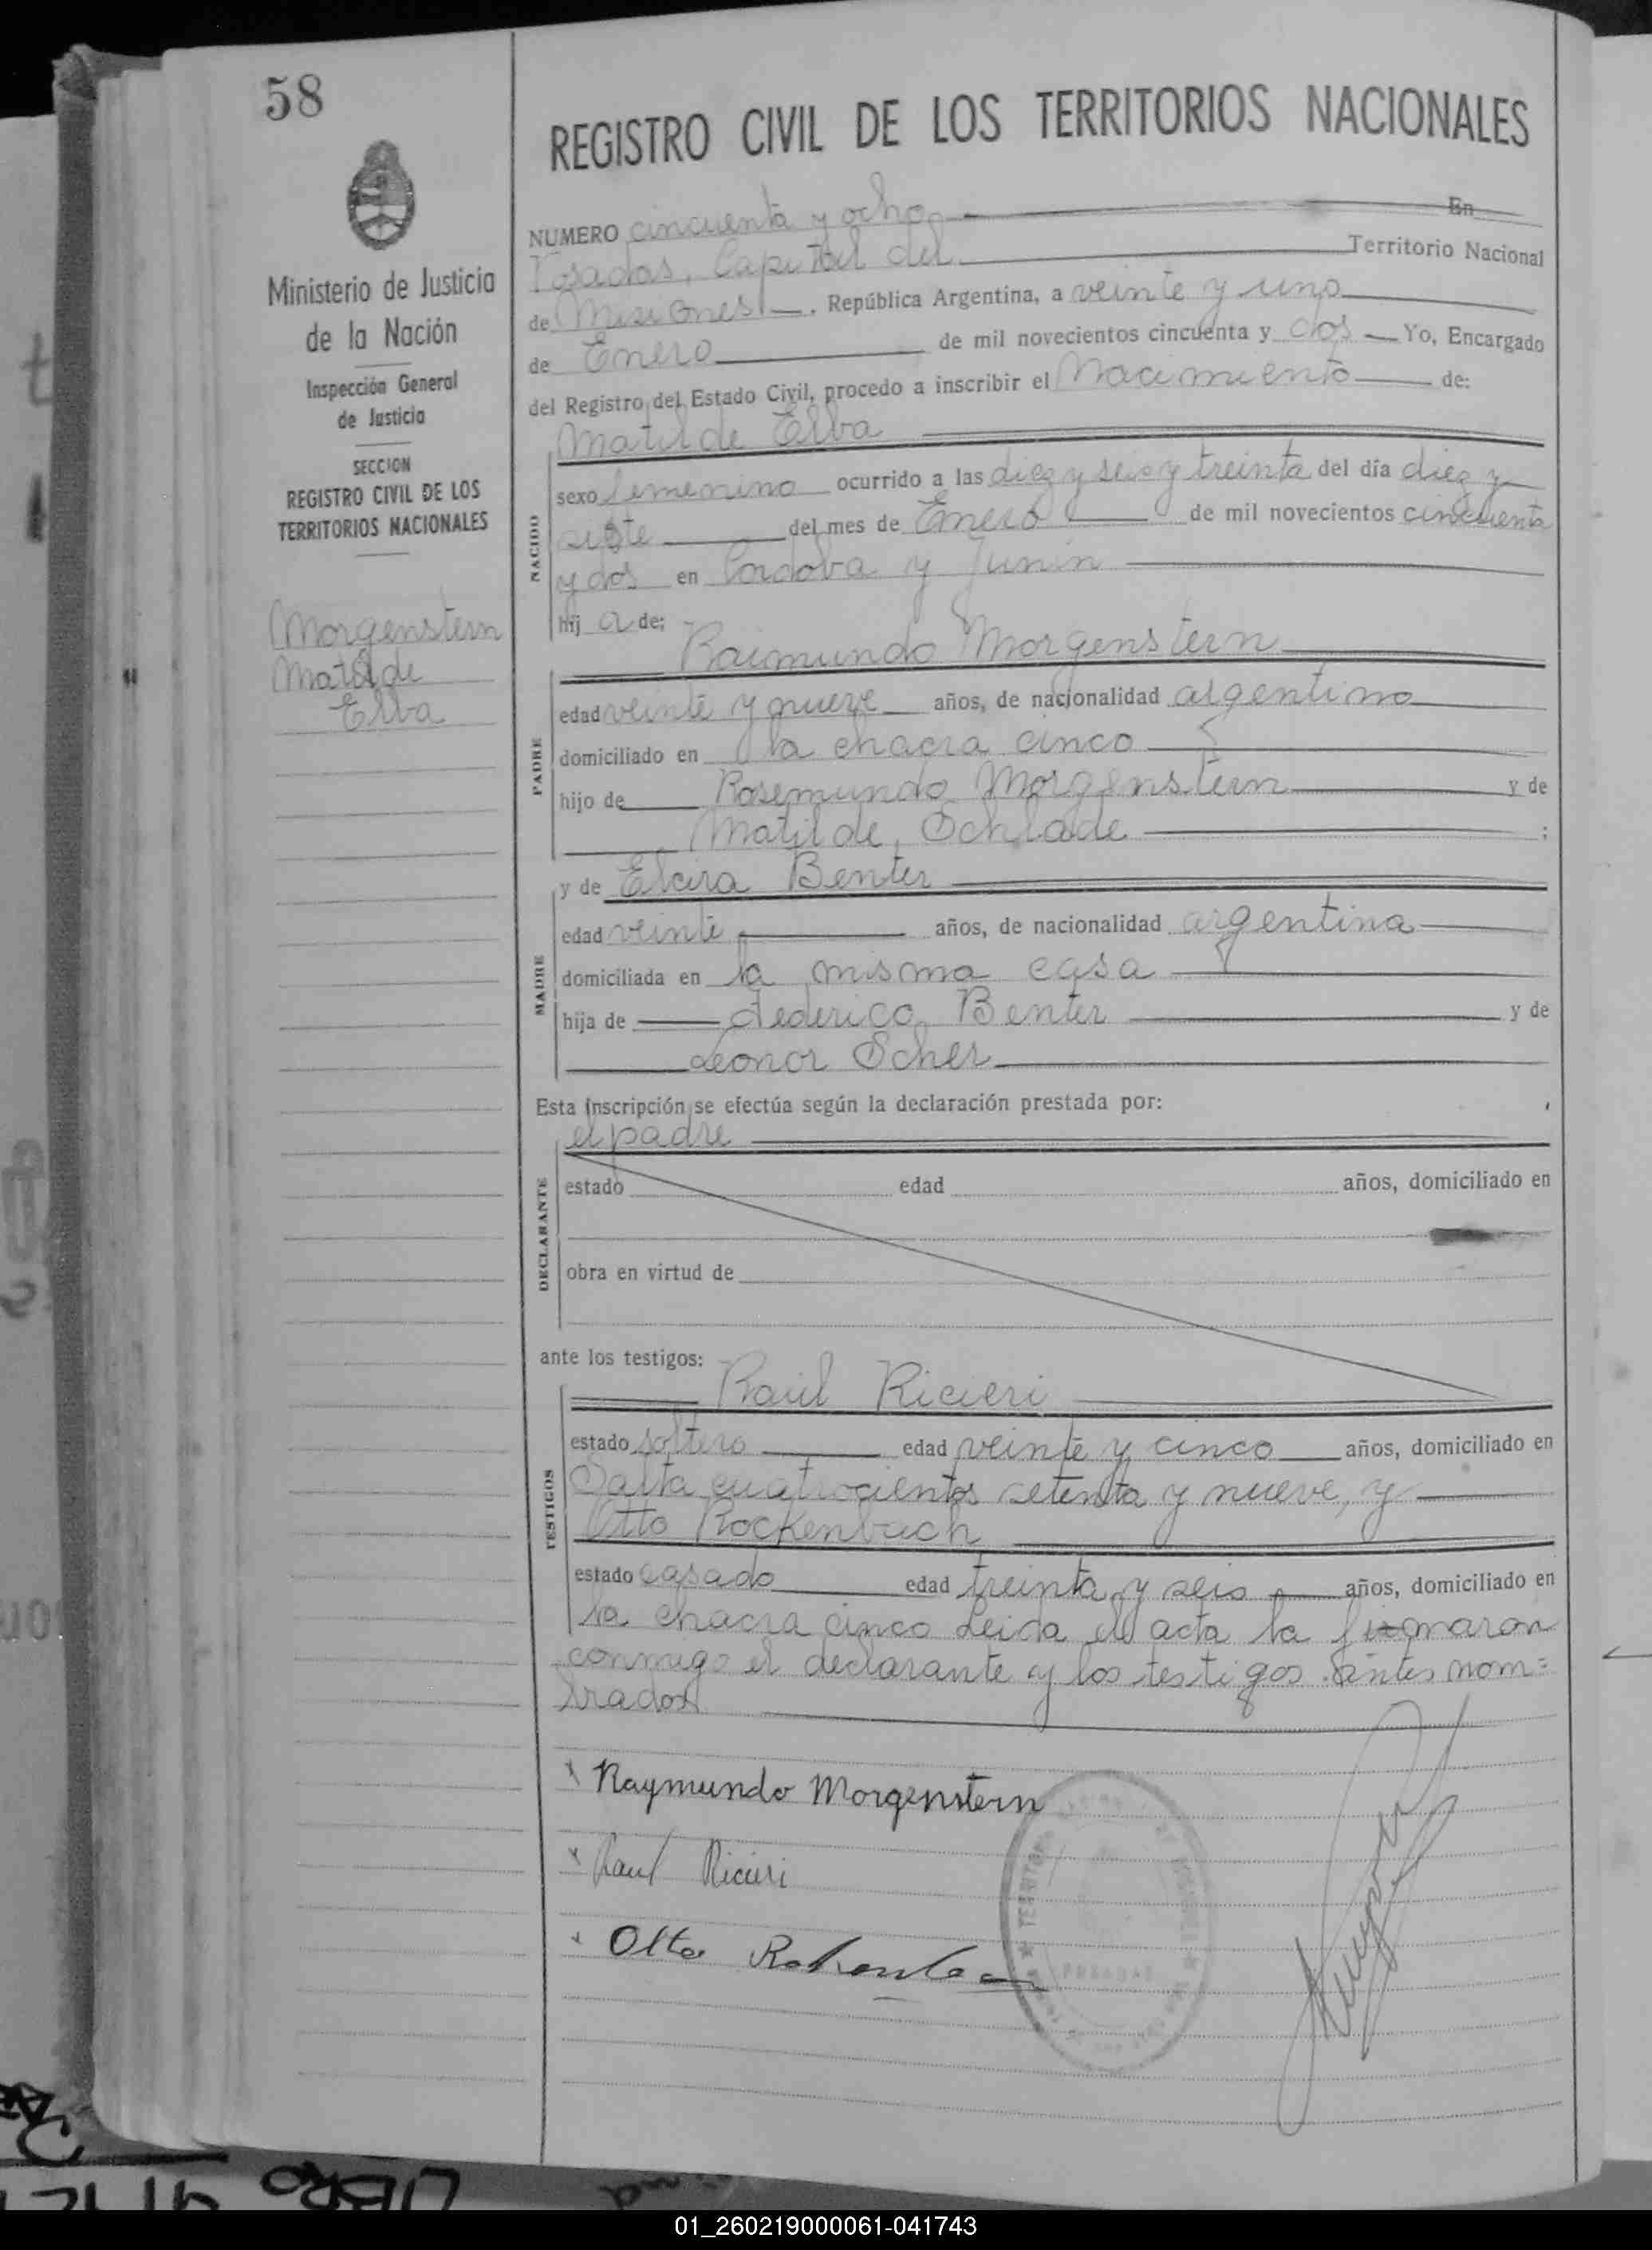 58
REGISTRO CIVIL DE LOS TERRITORIOS NACIONALES
Ministerio de Justicia
de la Nación
Inspección General
de Justicia
SECCION
REGISTRO CIVIL DE LOS
TERRITORIOS NACIONALES
Morgenstern
Matilde
Elba
NUMERO cincuenta y ocho En
Posadas, Capital del Territorio Nacional
de Misiones, República Argentina, a veinte y uno
de Enero de mil novecientos cincuenta y dos Yo, Encargado
del Registro del Estado Civil, procedo a inscribir el Nacimiento de:
Matilde Elba
NACIDO
sexo femenino ocurrido a las diez y seis y treinta del día diez y
siete del mes de Enero de mil novecientos cincuenta
y dos en Cordoba y Junin
hij a de:
Raimundo Morgenstern
PADRE
edad veinte y nueve años, de nacionalidad argentino
domiciliado en la chacra cinco
hijo de Rosemundo Morgenstern y de
Matilde Schlade ;
y de Elcira Benter
MADRE
edad veinte años, de nacionalidad argentina
domiciliada en la misma casa
hija de Federico Benter y de
Leonor Scher
Esta inscripción se efectúa según la declaración prestada por:
el padre
DECLARANTE
estado edad años, domiciliado en
obra en virtud de
ante los testigos:
Raúl Ricieri
TESTIGOS
estado soltero edad veinte y cinco años, domiciliado en
Salta cuatrocientos setenta y nueve, y
Otto Rockenbach
estado casado edad treinta y seis años, domiciliado en
la chacra cinco Leida el acta la firmaron
conmigo el declarante y los testigos antes nom=
brados
x Raymundo Morgenstern
x Raul Ricieri
x Otto
TERRITORIO
POSADAS
01_260219000061-041743